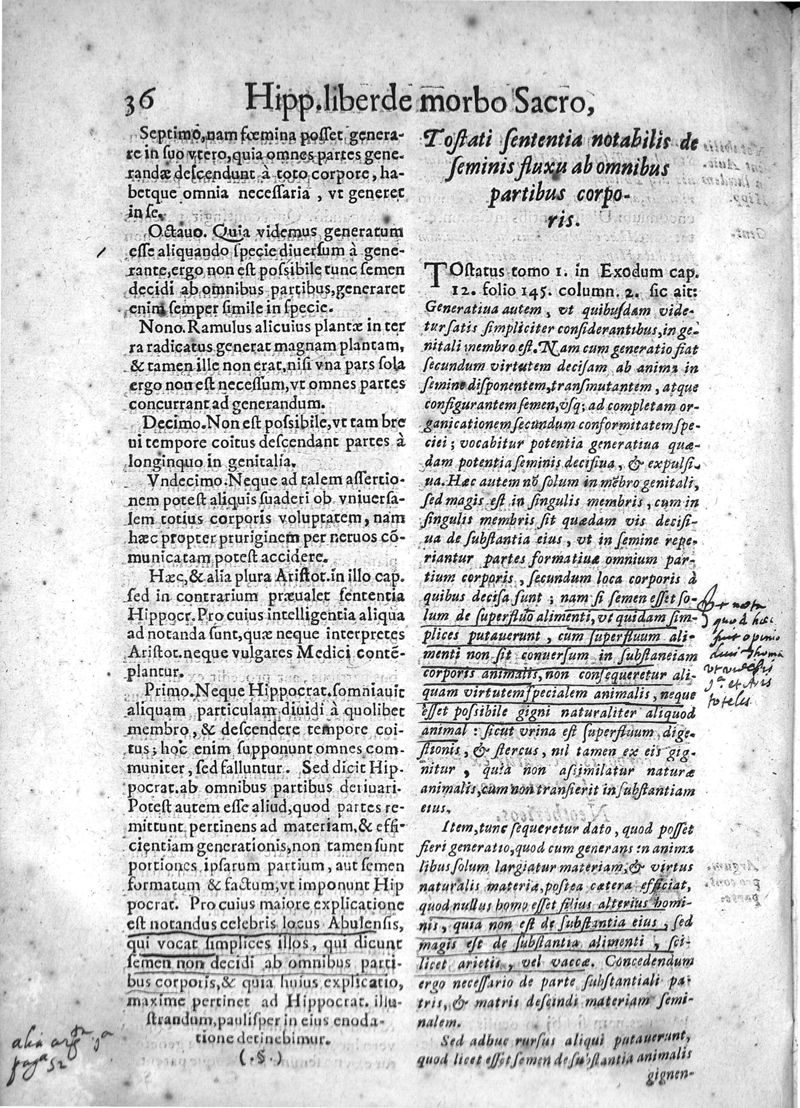 36
Hipp.liber de morbo Sacro,
Septimo, nam fœmina posset genera-
re in suo vtero, quia omnes partes gene-
randæ descendunt à toto corpore, ha-
betque omnia necessaria, vt generet
in se.
Octauo. Quia videmus generatum
esse aliquando specie diuersum à gene-
rante, ergo non est possibile tunc semen
decidi ab omnibus partibus, generaret
enim semper simile in specie.
Nono. Ramulus alicuius plantæ in ter
ra radicatus generat magnam plantam,
& tamen ille non erat, nisi vna pars sola
ergo non est necessum, vt omnes partes
concurrant ad generandum.
Decimo. Non est possibile, vt tam bre
ui tempore coitus descendant partes à
longinquo in genitalia.
Vndecimo. Neque ad talem assertio-
nem potest aliquis suaderi ob vniuersa-
lem totius corporis voluptatem, nam
hæc propter pruriginem per neruos cō-
municatam potest accidere.
Hæc, & alia plura Aristot. in illo cap.
sed in contrarium præualet sententia
Hippocr. Pro cuius intelligentia aliqua
ad notanda sunt, quæ neque interpretes
Aristot. neque vulgares Medici contē-
plantur.
Primo. Neque Hippocrat. somniauit
aliquam particulam diuidi à quolibet
membro, & descendere tempore coi-
tus; hoc enim supponunt omnes com-
muniter, sed falluntur. Sed dicit Hip-
pocrat. ab omnibus partibus deriuari.
Potest autem esse aliud, quod partes re-
mittunt pertinens ad materiam, & effi-
cientiam generationis, non tamen sunt
portiones ipsarum partium, aut semen
formatum & factum, vt imponunt Hip
pocrat. Pro cuius maiore explicatione
est notandus celebris locus Abulensis,
qui vocat simplices illos, qui dicunt
semen non decidi ab omnibus parti-
bus corporis, & quia huius explicatio,
maxime pertinet ad Hippocrat. illu-
strandum, paulisper in eius enoda-
tione detinebimur.
(.§.)
Tostati sententia notabilis de
seminis fluxu ab omnibus
partibus corpo-
ris.
TOstatus tomo 1. in Exodum cap.
12. folio 145. column. 2. sic ait:
Generatiua autem, vt quibusdam vide-
tur satis simpliciter considerantibus, in ge-
nitali membro est. Nam cum generatio fiat
secundum virtutem decisam ab anima in
semine disponentem, transmutantem, atque
configurantem semen, vsq; ad completam or-
ganicationem secundum conformitatem spe-
ciei; vocabitur potentia generatiua quæ-
dam potentia seminis decisiua, & expulsi-
ua. Hæc autem nō solum in mēbro genitali,
sed magis est in singulis membris, cum in
singulis membris sit quædam vis decisi-
ua de substantia eius, vt in semine repe-
riantur partes formatiuæ omnium par-
tium corporis, secundum loca corporis à
quibus decisa sunt; nam si semen esset so-
lum de superfluo alimenti, vt quidam sim-
plices putauerunt, cum superfluum ali-
menti non sit conuersum in substantiam
corporis animalis, non consequeretur ali-
quam virtutem specialem animalis, neque
esset possibile gigni naturaliter aliquod
animal: sicut vrina est superfluum, dige-
stionis, & stercus, nil tamen ex eis gig-
nitur, quia non assimilatur naturæ
animalis, cum non transierit in substantiam
eius.
Item, tunc sequeretur dato, quod posset
fieri generatio, quod cum generans in anima
libus solum largiatur materiam, & virtus
naturalis materiæ, postea cætera efficiat,
quod nullus homo esset filius alterius homi-
nis, quia non est de substantia eius, sed
magis est de substantia alimenti, sci-
licet arietis, vel vaccæ. Concedendum
ergo necessario de parte substantiali pa-
tris, & matris descindi materiam semi-
nalem.
Sed adhuc rursus aliqui putauerunt,
quod licet esset semen de substantia animalis
gignen-
et nota
quod hæc
fuit opinio
diui Thomæ
et Aris
toteles
alia arg
pag 52